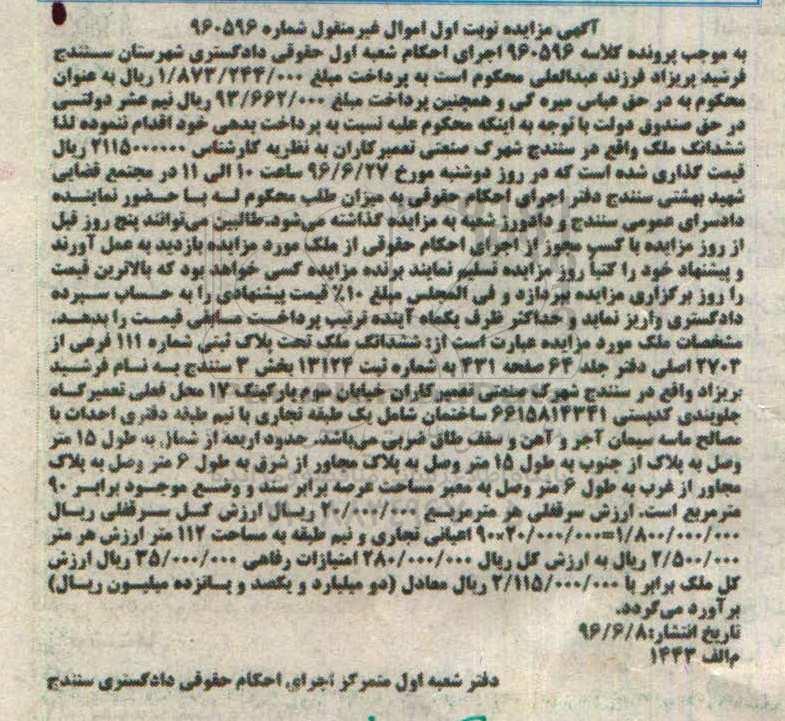 آگهی مزایده نوبت اول اموال غیرمنقول شماره ۹۶۰۵۹۶
به موجب پرونده کلاسه ۹۶۰۵۹۶ اجرای احکام شعبه اول حقوقی دادگستری شهرستان سنندج
فرشید پریزاد فرزند عبدالعلی محکوم است به پرداخت مبلغ ۱/۸۷۳/۲۴۴/۰۰۰ ریال به عنوان
محکوم به در حق عباس میره کی و همچنین پرداخت مبلغ ۹۳/۶۶۲/۰۰۰ ریال نیم عشر دولتی
در حق صندوق دولت با توجه به اینکه محکوم علیه نسبت به پرداخت بدهی خود اقدام ننموده لذا
ششدانگ ملک واقع در سنندج شهرک صنعتی تعمیرکاران به نظریه کارشناس ۲۱۱۵۰۰۰۰۰۰ ریال
قیمت گذاری شده است که در روز دوشنبه مورخ ۹۶/۶/۲۷ ساعت ۱۰ الی ۱۱ در مجتمع قضایی
شهید بهشتی سنندج دفتر اجرای احکام حقوقی به میزان طلب محکوم له با حضور نماینده
دادسرای عمومی سنندج و دادورز شعبه به مزایده گذاشته می‌شود.طالبین می‌توانند پنج روز قبل
از روز مزایده با کسب مجوز از اجرای احکام حقوقی از ملک مورد مزایده بازدید به عمل آورند
و پیشنهاد خود را کتباً روز مزایده تسلیم نمایند برنده مزایده کسی خواهد بود که بالاترین قیمت
را روز برگزاری مزایده بپردازد و فی المجلس مبلغ ۱۰٪ قیمت پیشنهادی را به حساب سپرده
دادگستری واریز نماید و حداکثر ظرف یکماه آینده ترتیب پرداخت مسابقی قیمت را بدهد.
مشخصات ملک مورد مزایده عبارت است از: ششدانگ ملک تحت پلاک ثبتی شماره ۱۱۱ فرعی از
۲۷۰۳ اصلی دفتر جلد ۶۴ صفحه ۴۳۱ به شماره ثبت ۱۳۱۲۴ بخش ۳ سنندج به نام فرشید
بریزاد واقع در سنندج شهرک صنعتی تعمیرکاران خیابان سوم پارکینگ ۱۷ محل فعلی تعمیرگاه
جلوبندی کدپستی ۶۶۱۵۸۱۴۳۴۱ ساختمان شامل یک طبقه تجاری با نیم طبقه دفتری احداث با
مصالح ماسه سیمان آجر و آهن و سقف طاق ضربی می‌باشد. حدود اربعه از شمال به طول ۱۵ متر
وصل به پلاک از جنوب به طول ۱۵ متر وصل به پلاک مجاور از شرق به طول ۶ متر وصل به پلاک
مجاور از غرب به طول ۶ متر وصل به معبر مساحت عرصه برابر سند و وضع موجود برابر ۹۰
مترمربع است. ارزش سرقفلی هر مترمربع ۲۰/۰۰۰/۰۰۰ ریال ارزش کل سرقفلی ریال
۱/۸۰۰/۰۰۰/۰۰۰=۹۰×۲۰/۰۰۰/۰۰۰ اعیانی تجاری و نیم طبقه به مساحت ۱۱۲ متر ارزش هر متر
۲/۵۰۰/۰۰۰ ریال به ارزش کل ریال ۲۸۰/۰۰۰/۰۰۰ امتیازات رفاهی ۳۵/۰۰۰/۰۰۰ ریال ارزش
کل ملک برابر با ۲/۱۱۵/۰۰۰/۰۰۰ ریال معادل (دو میلیارد و یکصد و پانزده میلیون ریال)
برآورد می‌گردد.
تاریخ انتشار:۹۶/۶/۸
م‌الف ۱۴۴۳
دفتر شعبه اول متمرکز اجرای احکام حقوقی دادگستری سنندج